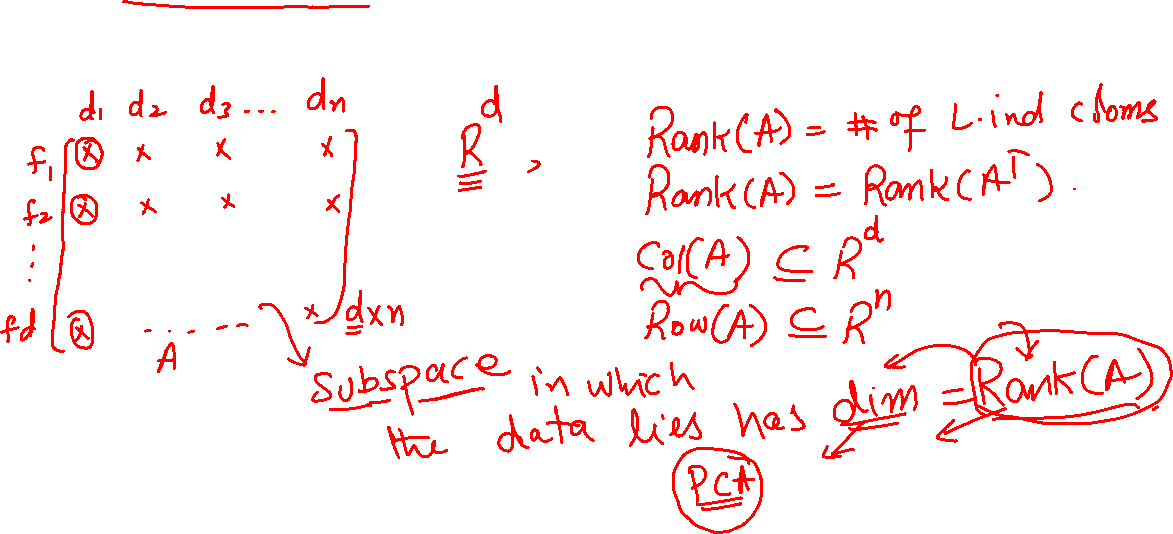 d1 d2 d3 ... dn
f1 x x x x
f2 x x x x
⋮
fd x ..... x d×n
A
R^d ,
Rank(A) = # of L.ind cloms
Rank(A) = Rank(A^T).
Col(A) ⊆ R^d
Row(A) ⊆ R^n
Subspace in which
the data lies has dim = Rank(A)
PCA